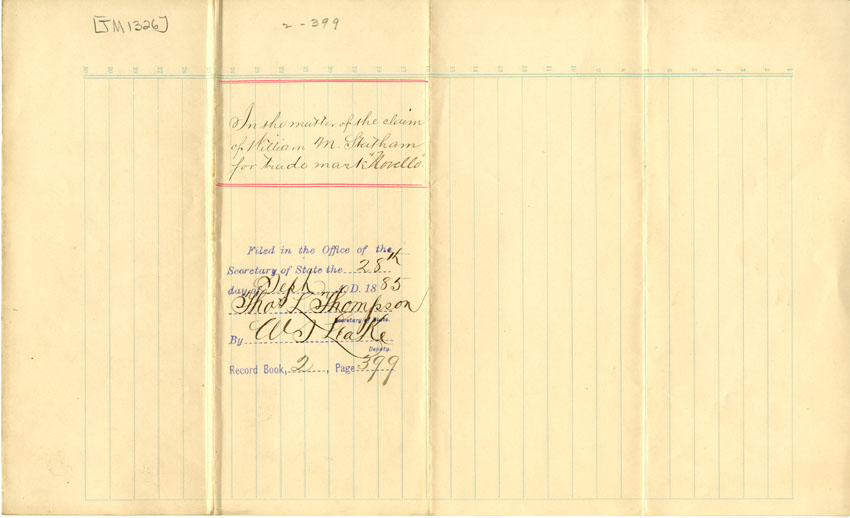 [TM1326]
2-399
In the matter of the claim
of William M. Statham
for trade mark "Novello"
Filed in the Office of the
Secretary of State the 28th
day of Sept A. D. 1885
Thos L Thompson
Secretary of State.
By W J Leake
Deputy.
Record Book, 2, Page 399